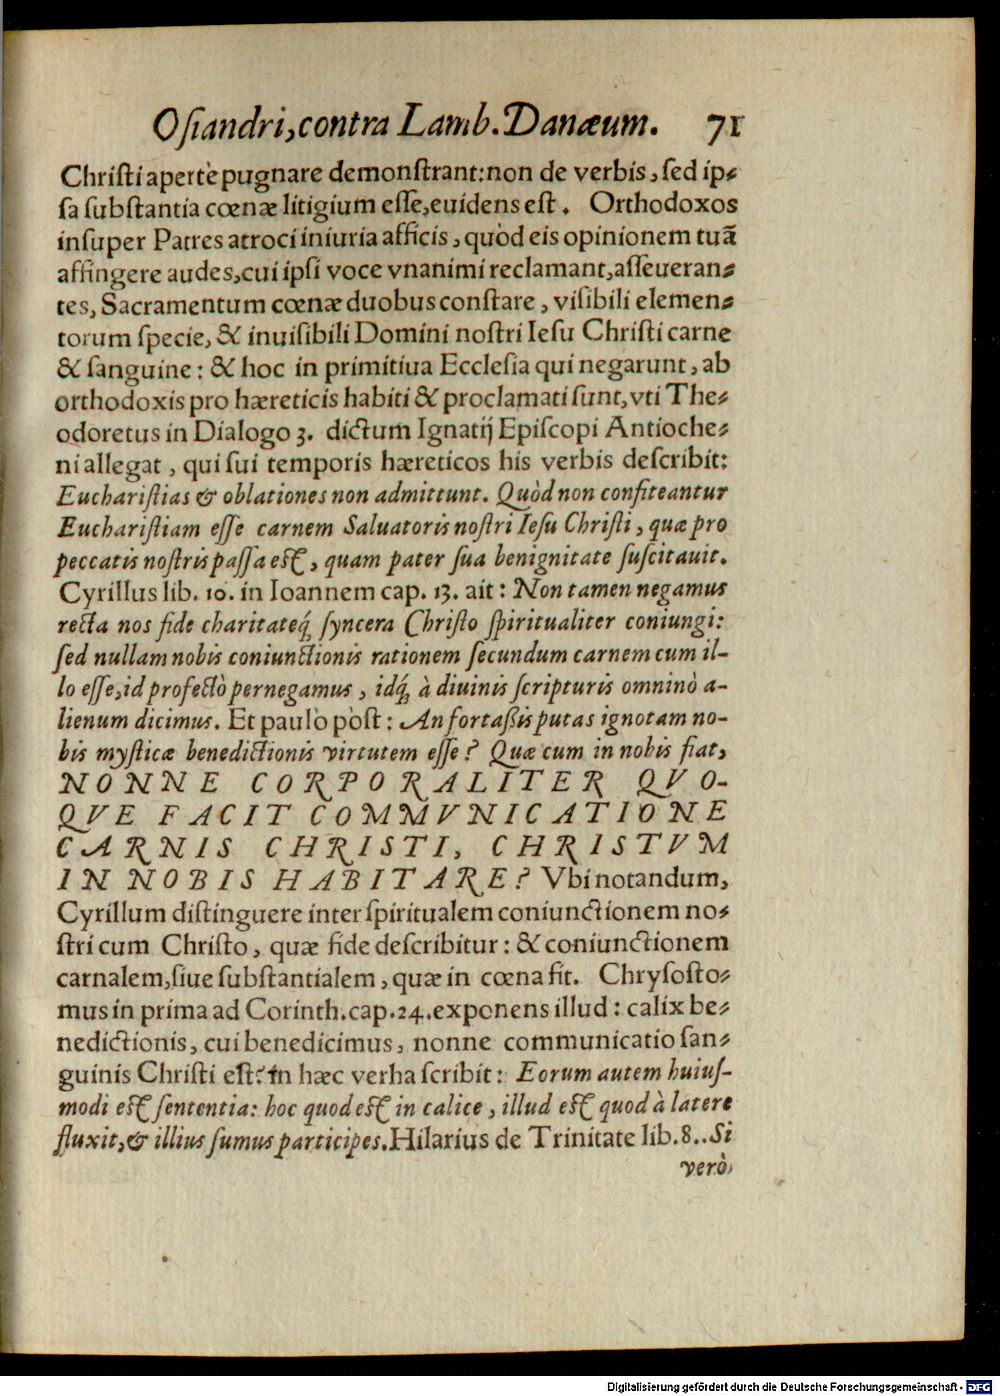 Oſiandri, contra Lamb. Danæum. 71
Chriſti apertè pugnare demonſtrant: non de verbis, ſed ip-
ſa ſubſtantia cœnæ litigium eſſe, euidens eſt. Orthodoxos
inſuper Patres atroci iniuria afficis, quòd eis opinionem tuã
affingere audes, cui ipſi voce vnanimi reclamant, aſſeueran-
tes, Sacramentum cœnæ duobus conſtare, viſibili elemen-
torum ſpecie, & inuiſibili Domini noſtri Ieſu Chriſti carne
& ſanguine: & hoc in primitiua Eccleſia qui negarunt, ab
orthodoxis pro hæreticis habiti & proclamati ſunt, vti The-
odoretus in Dialogo 3. dictum Ignatij Epiſcopi Antioche-
ni allegat, qui ſui temporis hæreticos his verbis deſcribit:
Euchariſtias & oblationes non admittunt. Quòd non confiteantur
Euchariſtiam eſſe carnem Saluatoris noſtri Ieſu Chriſti, quæ pro
peccatis noſtris paſſa eſt, quam pater ſua benignitate ſuſcitauit.
Cyrillus lib. 10. in Ioannem cap. 13. ait: Non tamen negamus
recta nos fide charitateq́; ſyncera Chriſto ſpiritualiter coniungi:
ſed nullam nobis coniunctionis rationem ſecundum carnem cum il-
lo eſſe, id profectò pernegamus, idq́; à diuinis ſcripturis omninò a-
lienum dicimus. Et paulò pòſt: An fortaßis putas ignotam no-
bis myſticæ benedictionis virtutem eſſe? Quæ cum in nobis fiat,
NONNE CORPORALITER QVO-
QVE FACIT COMMVNICATIONE
CARNIS CHRISTI, CHRISTVM
IN NOBIS HABITARE? Vbi notandum,
Cyrillum diſtinguere inter ſpiritualem coniunctionem no-
ſtri cum Chriſto, quæ fide deſcribitur: & coniunctionem
carnalem, ſiue ſubſtantialem, quæ in cœna fit. Chryſoſto-
mus in prima ad Corinth. cap. 24. exponens illud: calix be-
nedictionis, cui benedicimus, nonne communicatio ſan-
guinis Chriſti eſt? in hæc verba ſcribit: Eorum autem huiuſ-
modi eſt ſententia: hoc quod eſt in calice, illud eſt quod à latere
fluxit, & illius ſumus participes. Hilarius de Trinitate lib. 8.. Si
verò,
Digitalisierung gefördert durch die Deutsche Forschungsgemeinschaft - DFG